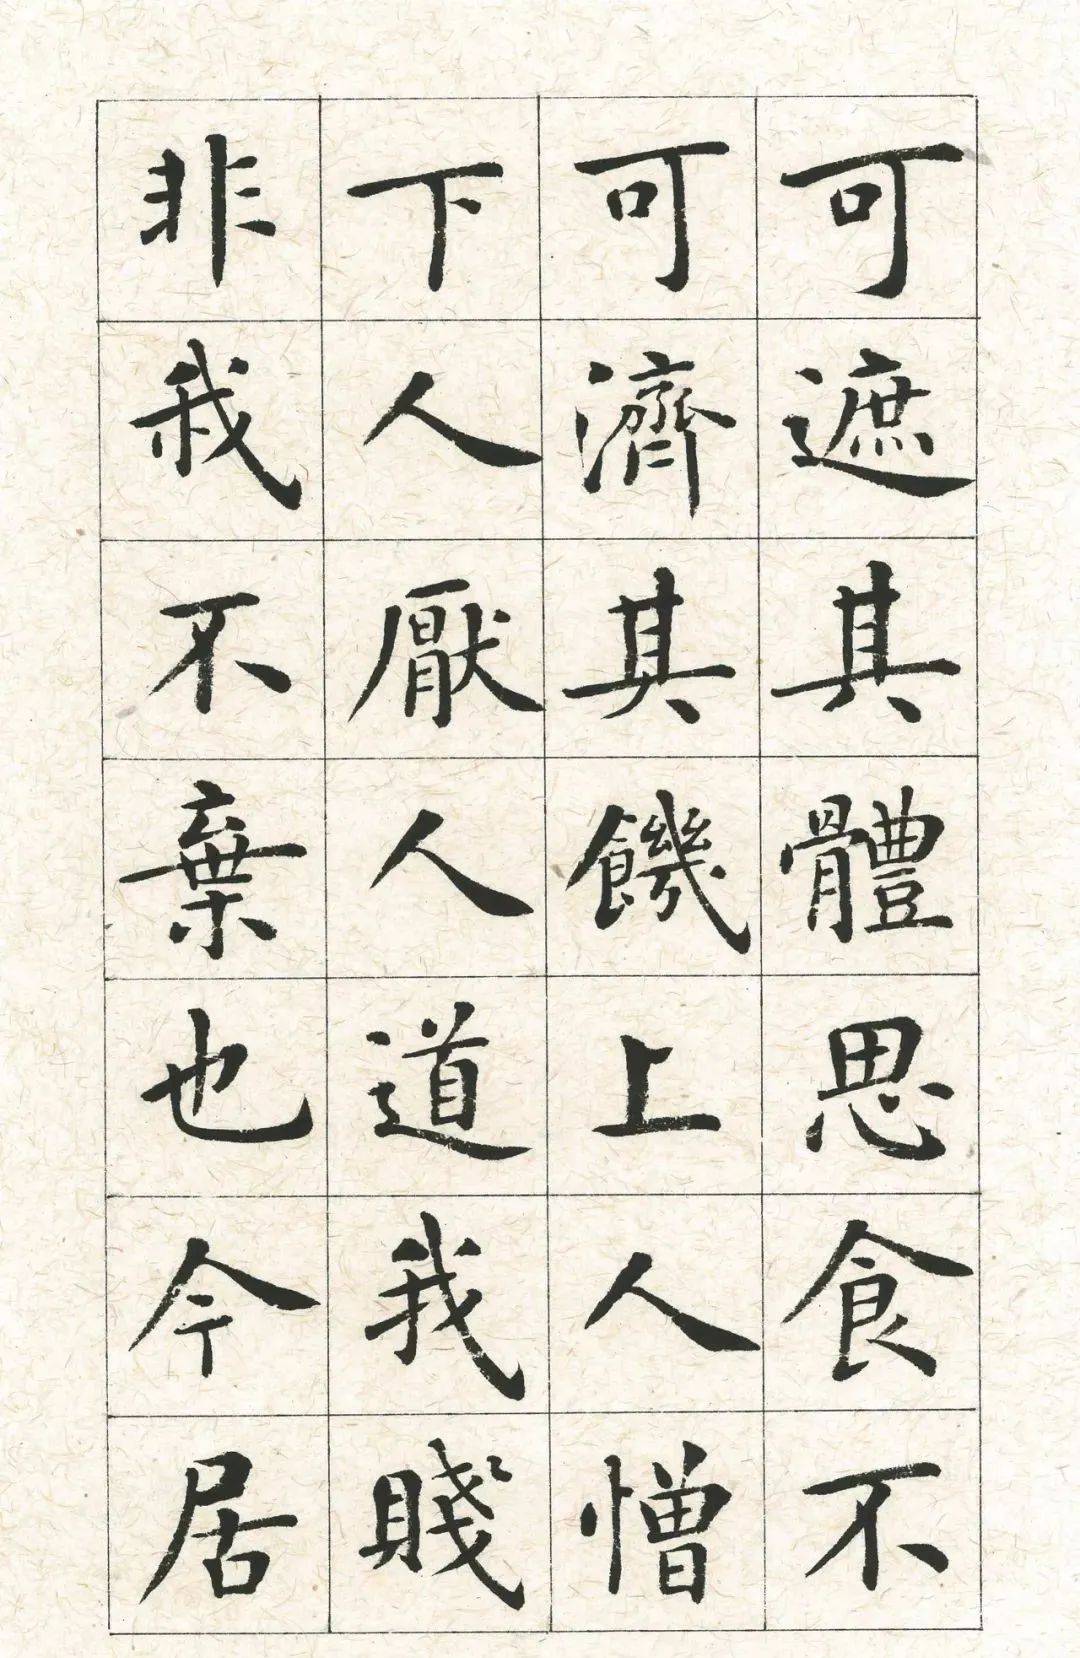 可遮其體思食不
可濟其饑上人憎
下人厭人道我賤
非我不棄也今居